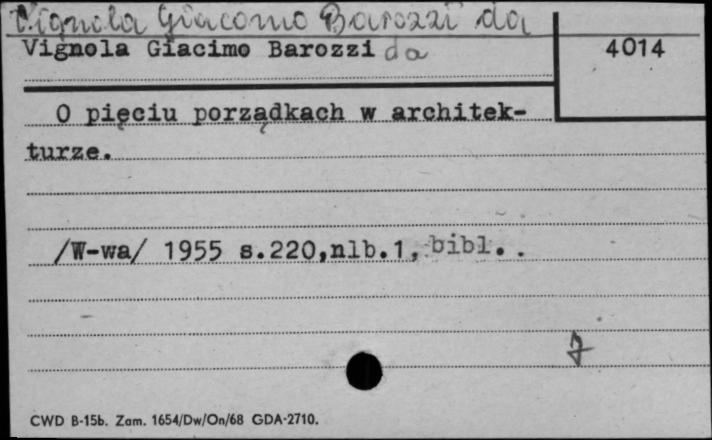 Vignola Giacomo Barozzi da
Vignola Giacimo Barozzi da
4014
O pięciu porządkach w architek-
turze.
/W-wa/ 1955 s.220,nlb.1, bibl..
CWD B-15b. Zam. 1654/Dw/On/68 GDA-2710.